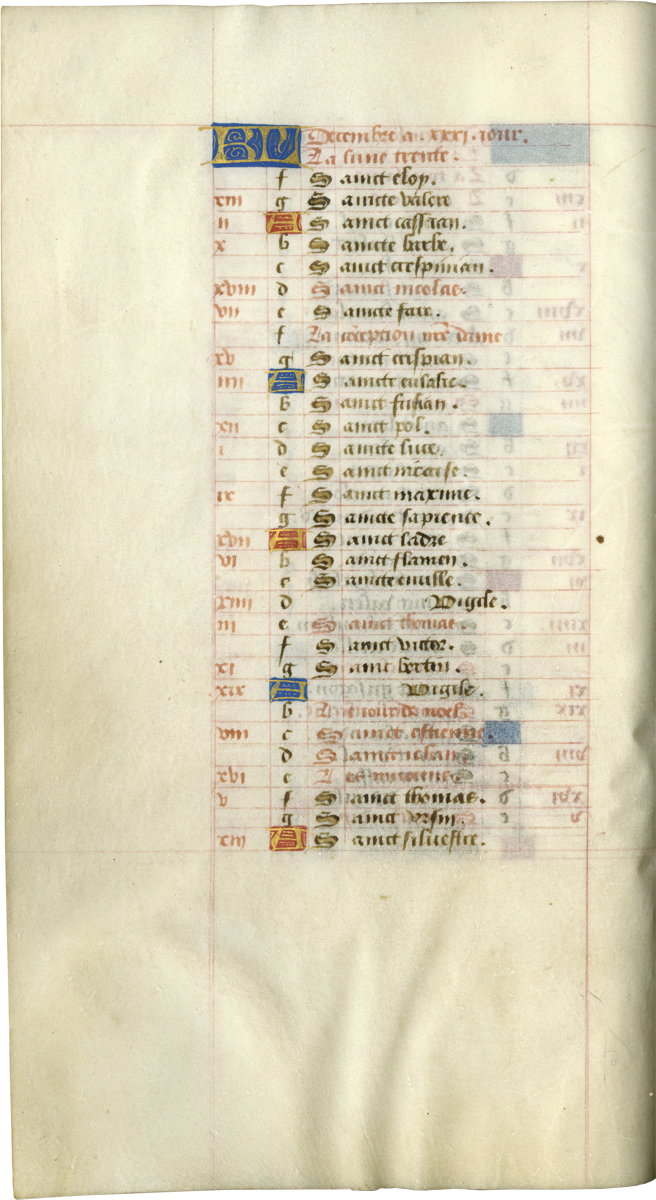 KL Decembre a .xxxi. iour.
La lune trente.
f Sainct eloy.
xiii g Saincte valere
ii A Sainct cassian.
x b Saincte barbe.
c Sainct crespinian.
xviii d Sainct nicolas.
vii e Saincte fare.
f La cception nre dame
xv g Sainct crispian.
iiii A Saincte eulalie.
b Sainct fulian.
xii c Sainct pol.
i d Saincte luce.
e Sainct nicaise.
ix f Sainct maxime.
g Saincte sapience.
xvii A Sainct ladre
vi b Sainct flamen.
c Saincte
xiiii d Vigile.
iii e Sainct thomas.
f Sainct victor.
xi g Sainct bertin.
xix A Vigile.
b Le iour de noel.
viii c Sainct estienne.
d Sainct iehan
xvi e Les innocens
v f Sainct thomas.
g Sainct vrsin.
xiii A Sainct siluestre.